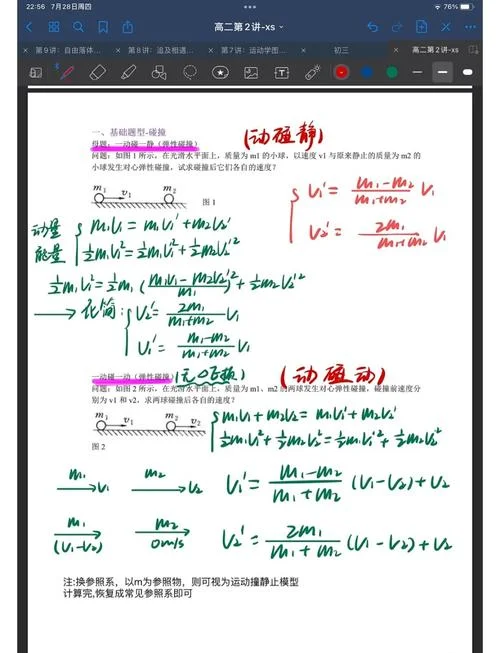 22:56 7月28日周四
76%
高二第2讲-xs
第9讲：自由落体...
第8讲：追及相遇...
第7讲：运动学图...
初三
高二第2讲-xs
一、基础题型-碰撞
母题：一动碰一静（弹性碰撞）
(动碰静)
问题：如图1所示，在光滑水平面上，质量为m1的小球，以速度v1与原来静止的质量为m2的
小球发生对心弹性碰撞，试求碰撞后它们各自的速度？
m₁ v₁ m₂
图1
V₁' = (m₁-m₂)/(m₁+m₂) V₁
V₂' = 2m₁/(m₁+m₂) V₁
动量 m₁V₁ = m₁V₁' + m₂V₂'
能量 ½m₁V₁² = ½m₁V₁'² + ½m₂V₂'²
½m₁V₁² = ½m₁ ((m₁V₁-m₂V₂')/m₁)² + ½m₂V₂'²
→ 化简: V₂' = 2m₁/(m₁+m₂) V₁
V₁' = (m₁-m₂)/(m₁+m₂) V₁
一动碰一动（弹性碰撞）
(动碰动)
问题：如图2所示，在光滑水平面上，质量为m1、m2的两球发生对心弹性碰撞，碰撞前速度分
别为v1和v2，求两球碰撞后各自的速度？
m₁ v₁ m₂ v₂
图2
m₁V₁ + m₂V₂ = m₁V₁' + m₂V₂'
½m₁V₁² + ½m₂V₂² = ½m₁V₁'² + ½m₂V₂'²
m₁ → V₁ m₂ → V₂
V₁' = (m₁-m₂)/(m₁+m₂) (V₁-V₂) + V₂
m₁ (V₁-V₂) m₂ 0m/s
V₂' = 2m₁/(m₁+m₂) (V₁-V₂) + V₂
注:换参照系，以m为参照物，则可视为运动撞静止模型
计算完,恢复成常见参照系即可